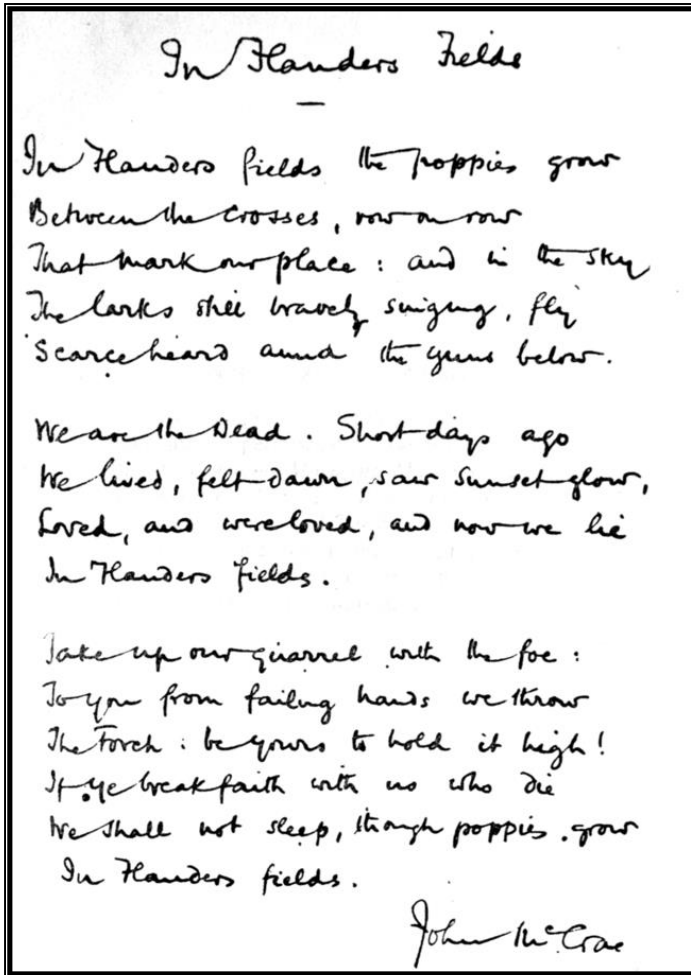 In Flanders Fields
In Flanders fields the poppies grow
Between the crosses, row on row
That mark our place: and in the sky
The larks still bravely singing, fly
Scarce heard amid the guns below.
We are the Dead. Short days ago
We lived, felt dawn, saw sunset glow,
Loved, and were loved, and now we lie
In Flanders fields.
Take up our quarrel with the foe:
To you from failing hands we throw
The Torch: be yours to hold it high!
If ye break faith with us who die
We shall not sleep, though poppies grow
In Flanders fields.
John McCrae